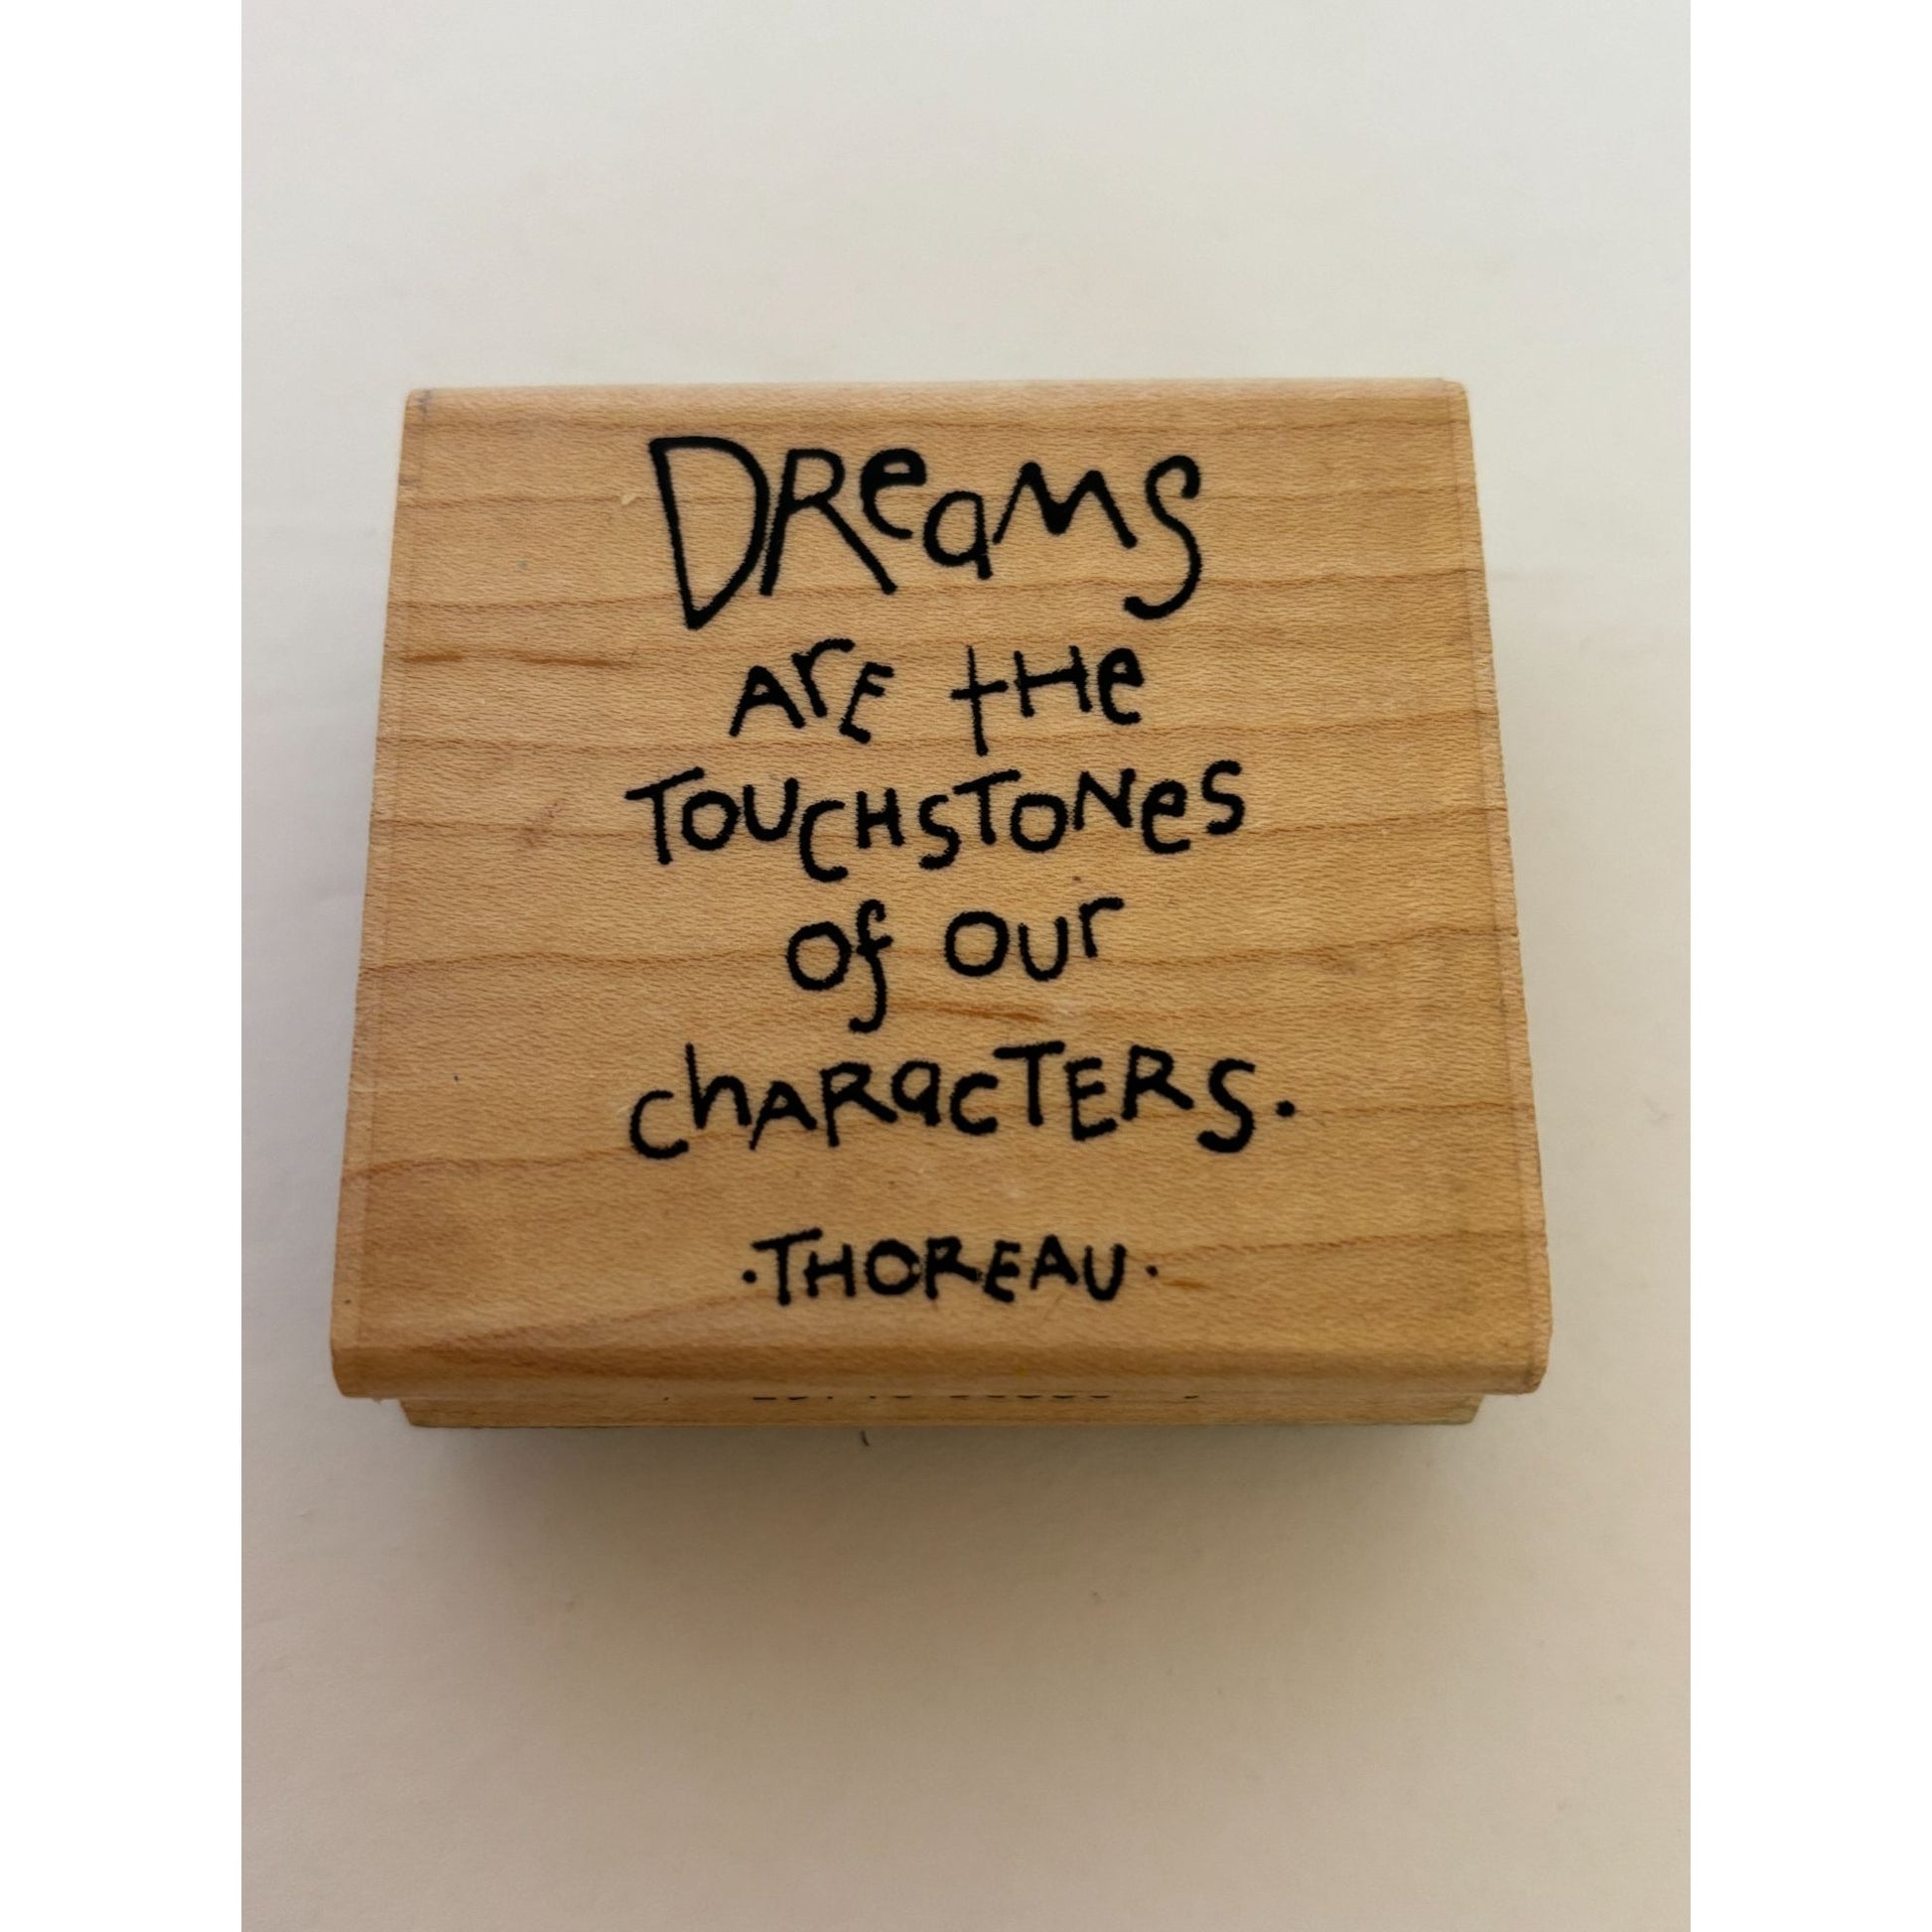 DReaMS
ArE tHe
TOUCHSTONeS
of our
chARacTERS.
·THOREAU·